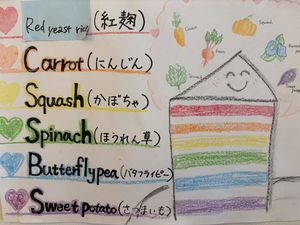 Red yeast rice (紅麹)
Carrot (にんじん)
Squash (かぼちゃ)
Spinach (ほうれん草)
Butterflypea (バタフライピー)
Sweet potato (さつまいも)
Carrot
Squash